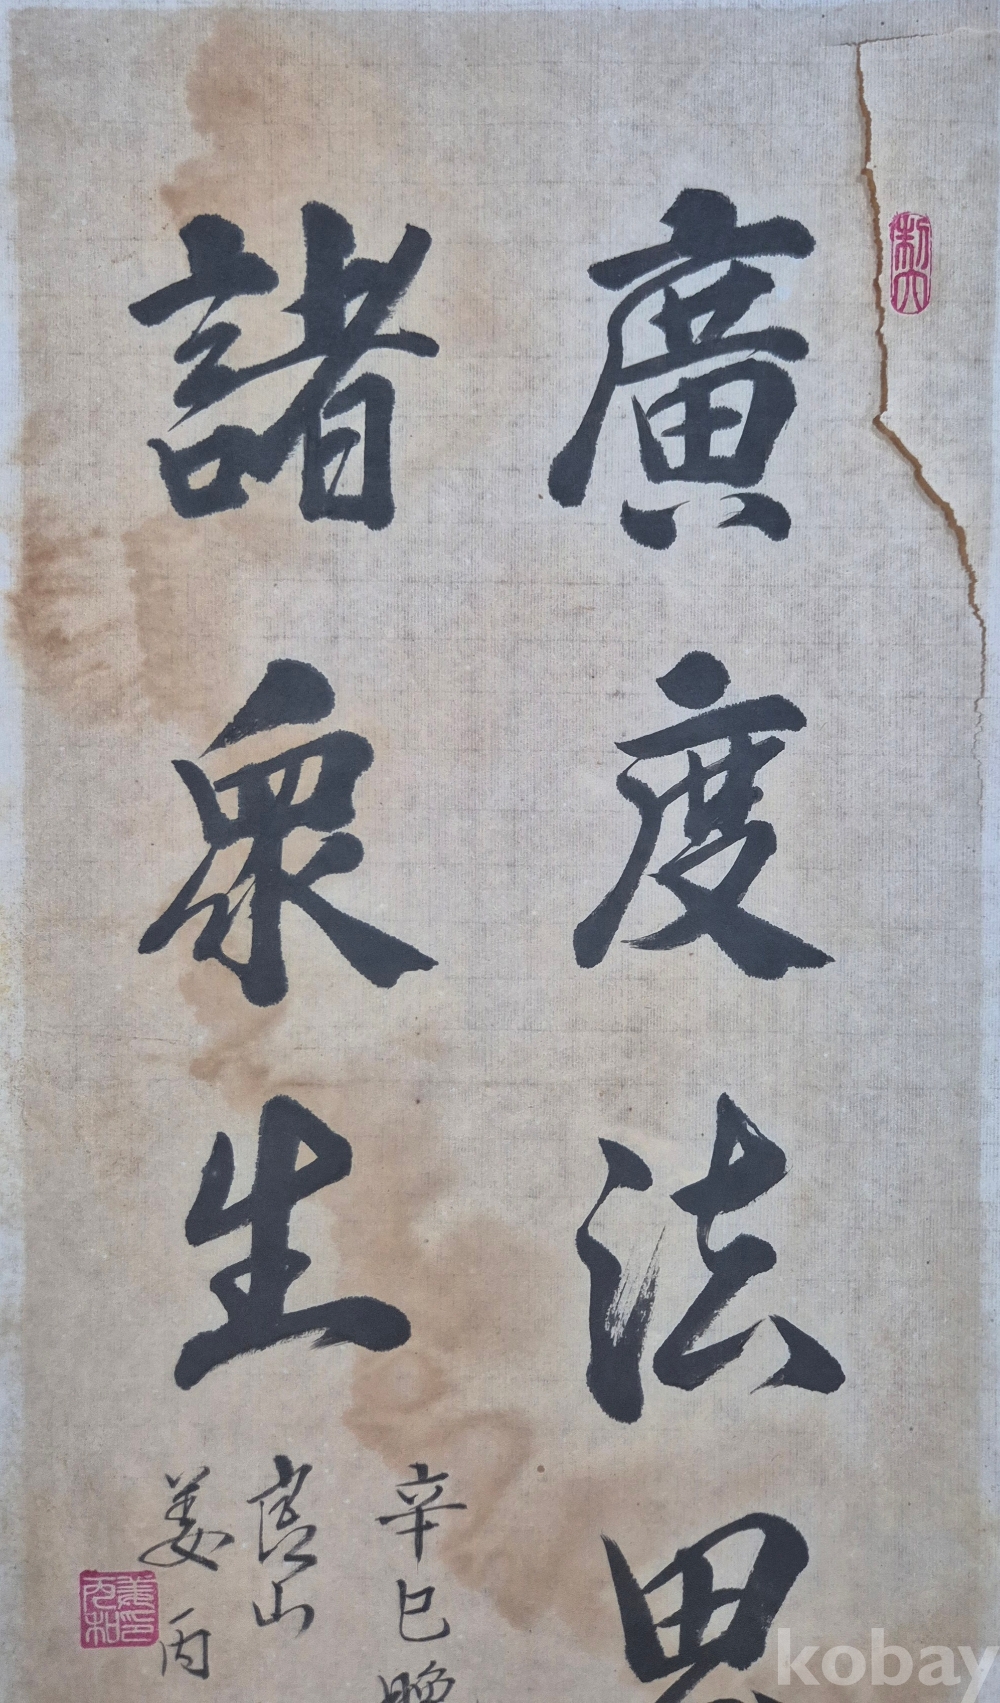 廣度法思
諸衆生
辛巳晚
山
姜丙
kobay